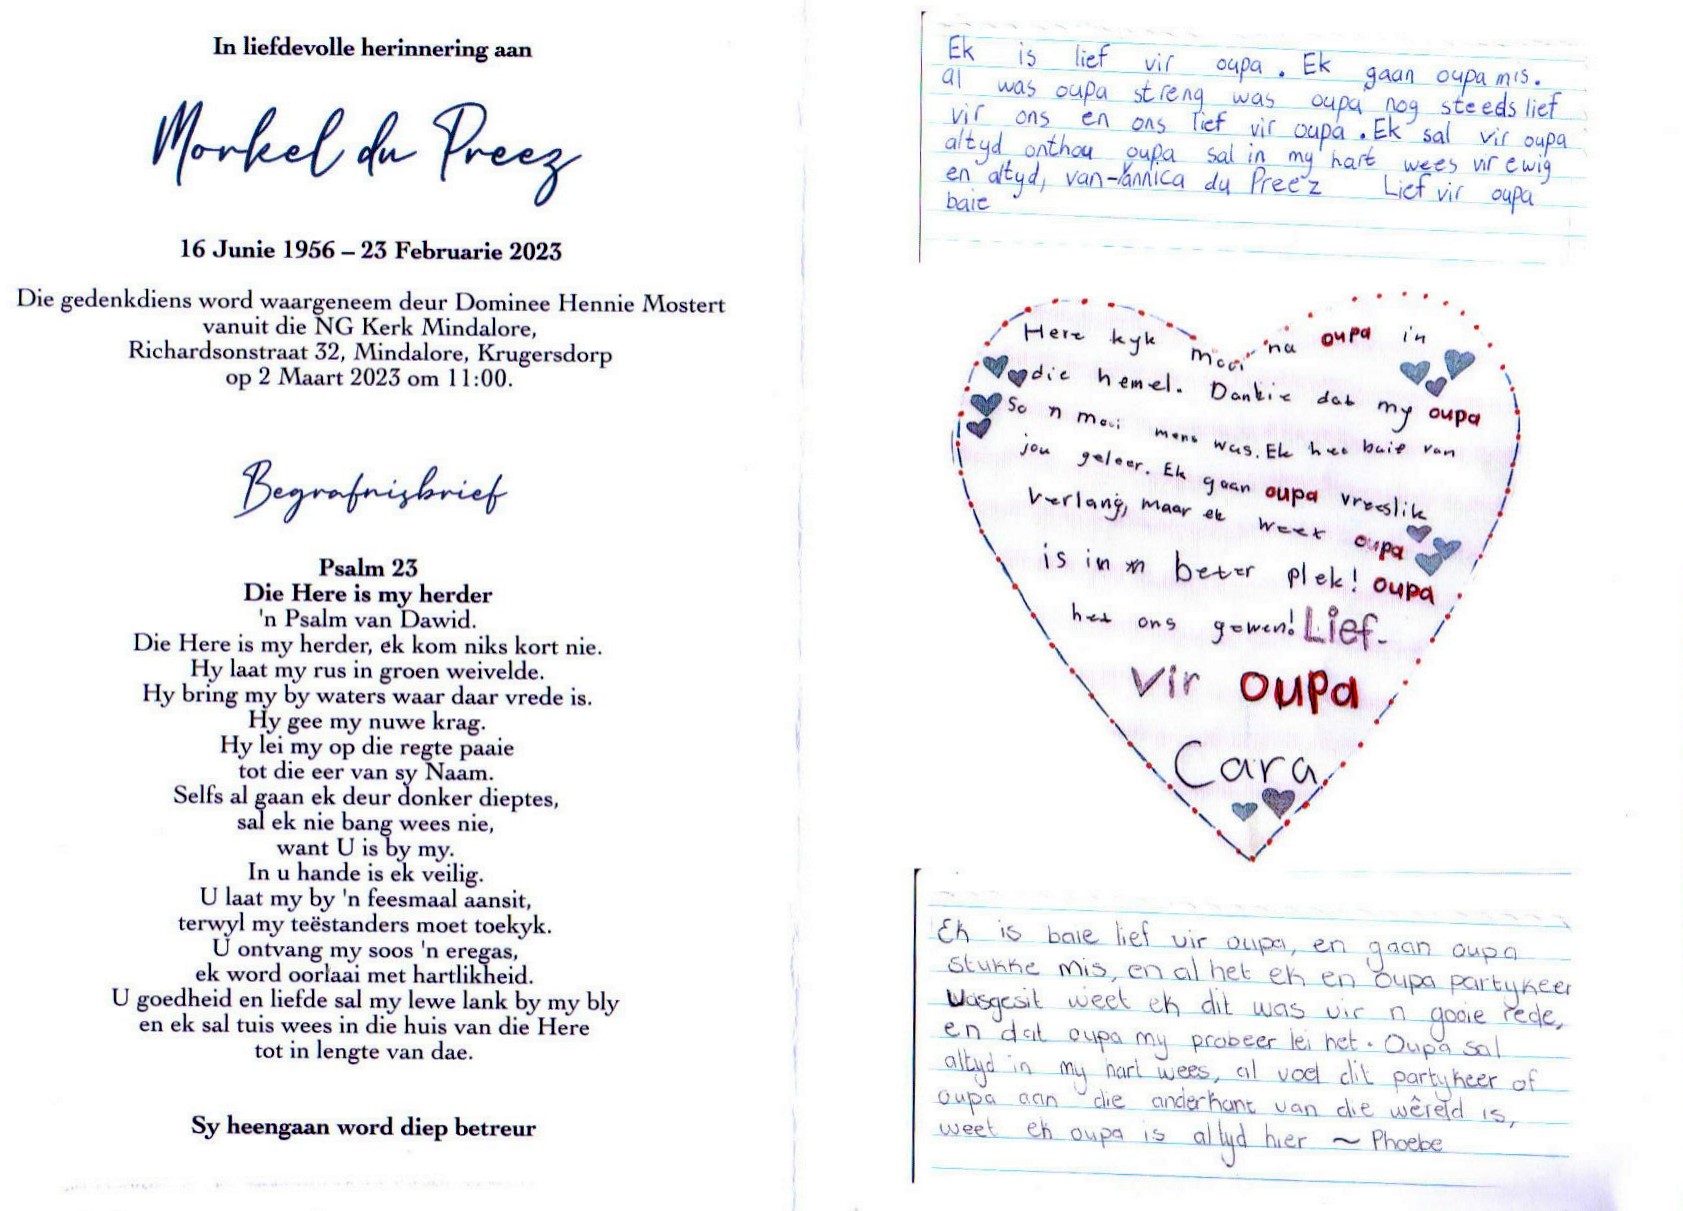 In liefdevolle herinnering aan
Morkel du Preez
16 Junie 1956 – 23 Februarie 2023
Die gedenkdiens word waargeneem deur Dominee Hennie Mostert
vanuit die NG Kerk Mindalore,
Richardsonstraat 32, Mindalore, Krugersdorp
op 2 Maart 2023 om 11:00.
Begrafnisbrief
Psalm 23
Die Here is my herder
'n Psalm van Dawid.
Die Here is my herder, ek kom niks kort nie.
Hy laat my rus in groen weivelde.
Hy bring my by waters waar daar vrede is.
Hy gee my nuwe krag.
Hy lei my op die regte paaie
tot die eer van sy Naam.
Selfs al gaan ek deur donker dieptes,
sal ek nie bang wees nie,
want U is by my.
In u hande is ek veilig.
U laat my by 'n feesmaal aansit,
terwyl my teëstanders moet toekyk.
U ontvang my soos 'n eregas,
ek word oorlaai met hartlikheid.
U goedheid en liefde sal my lewe lank by my bly
en ek sal tuis wees in die huis van die Here
tot in lengte van dae.
Sy heengaan word diep betreur
Ek is lief vir oupa. Ek gaan oupa mis.
al was oupa streng was oupa nog steeds lief
vir ons en ons lief vir oupa. Ek sal vir oupa
altyd onthou oupa sal in my hart wees vir ewig
en altyd, van-Jannica du Preez Lief vir oupa
baie
Here kyk mooi na oupa in
die hemel. Dankie dat my oupa
So n mooi mens was. Ek het baie van
jou geleer. Ek gaan oupa vreeslik
verlang, maar ek weet oupa
is in n beter plek! oupa
het ons gewen! Lief
vir oupa
Cara
Ek is baie lief vir oupa, en gaan oupa
stukke mis, en al het ek en oupa partykeer
vasgesit weet ek dit was vir n gooie rede,
en dat oupa my probeer lei het. Oupa sal
altyd in my hart wees, al voel dit partykeer of
oupa aan die anderkant van die wêreld is,
weet ek oupa is altyd hier ~ Phoebe